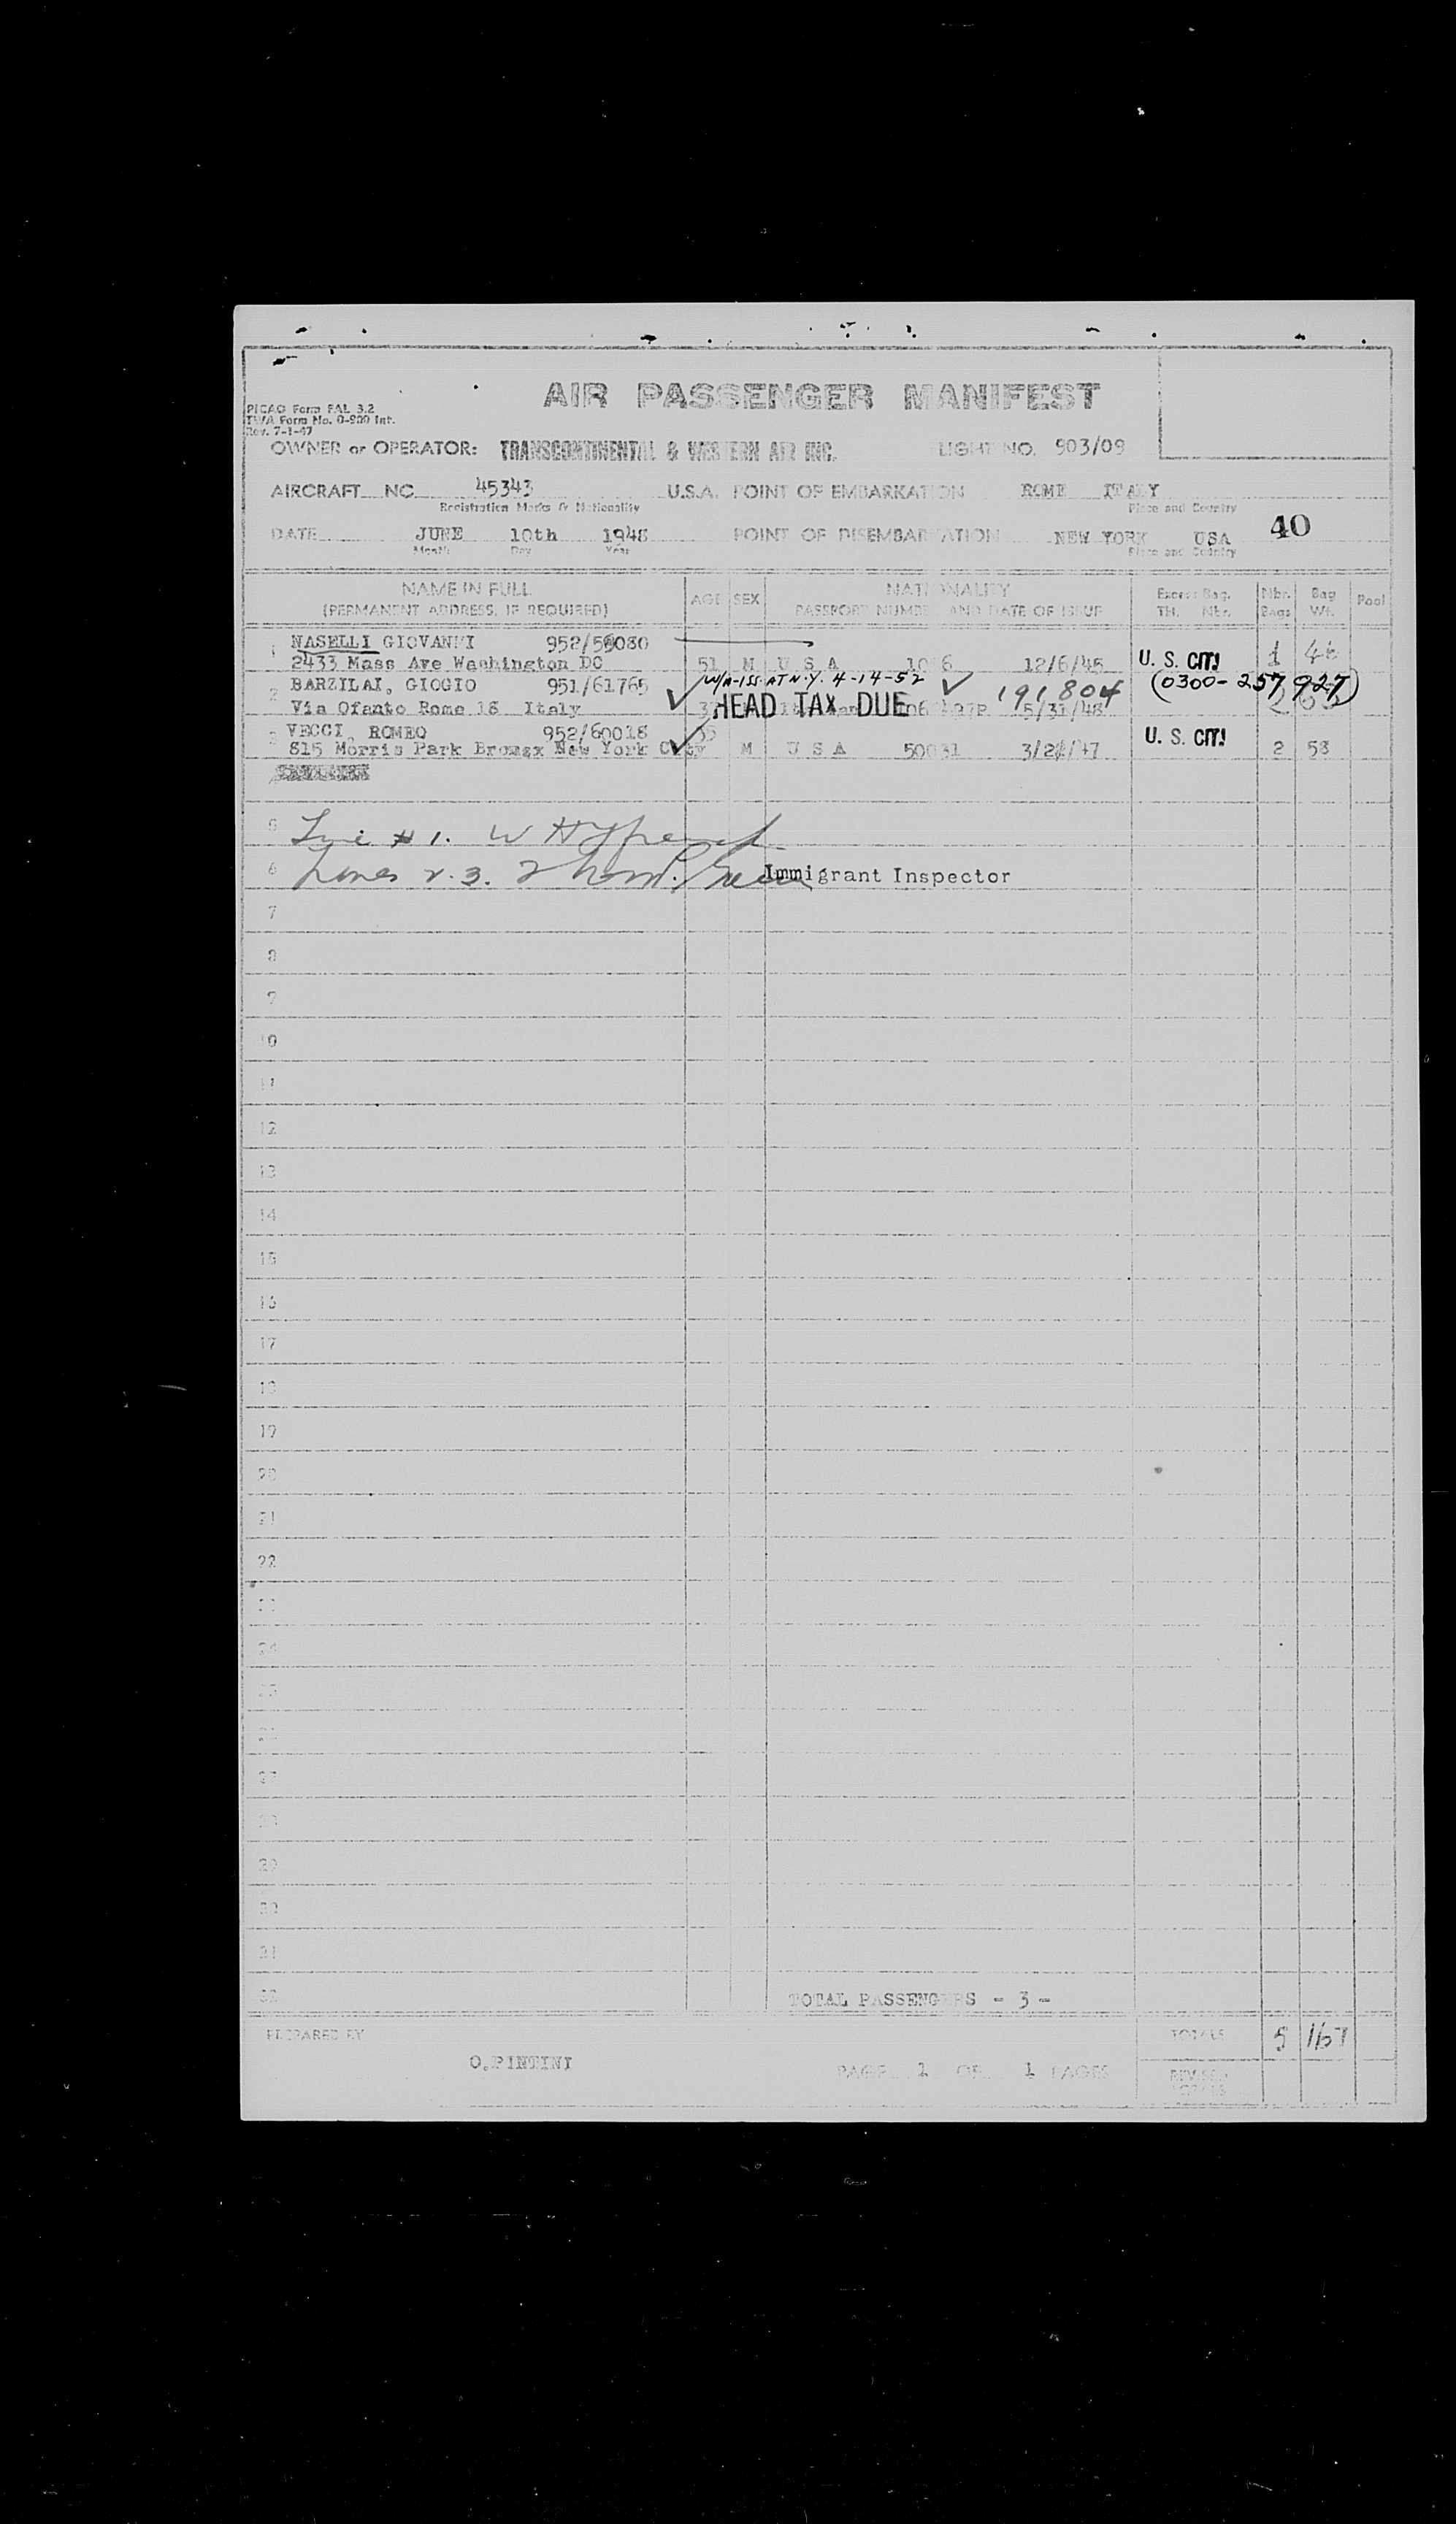 AIR PASSENGER MANIFEST
PICAO Form FAL 3.2
TWA Form No. 0-900 Int.
Rev. 7-1-47
OWNER or OPERATOR: TRANSCONTINENTAL & WESTERN AIR INC. FLIGHT NO. 903/09
AIRCRAFT NO. 45343 U.S.A. POINT OF EMBARKATION ROME ITALY
Registration Marks & Nationality Place and Country
DATE JUNE 10th 1948 POINT OF DISEMBARKATION NEW YORK USA 40
Month Day Year Place and Country
NAME IN FULL AGE SEX NATIONALITY Excess Bag. Nbr. Bag Pool
(PERMANENT ADDRESS, IF REQUIRED) PASSPORT NUMBER AND DATE OF ISSUE TH. Nbr. Bags Wt.
1 NASELLI GIOVANNI 952/58080
2433 Mass Ave Washington DC 51 M U S A 12/6/45 U. S. CIT! 1
2 BARZILAI, GIOGIO 951/61765 W/A-ISS. AT N.Y. 4-14-52 191804 (0300-257927)
Via Ofanto Rome 18 Italy HEAD TAX DUE 5/31/48
3 VECCI, ROMEO 952/60018 35 U. S. CIT!
815 Morris Park Bronx New York City M U S A 50031 47 2 58
5 Line #1.
6 Lines 2.3. Immigrant Inspector
7
8
9
10
11
12
13
14
15
16
17
18
19
20
21
22
23
24
25
26
27
28
29
30
31
32 TOTAL PASSENGERS - 3 -
PREPARED BY TOTALS 5 167
O.PINTINI PAGE 1 OF 1 PAGES REVISED
TOTALS